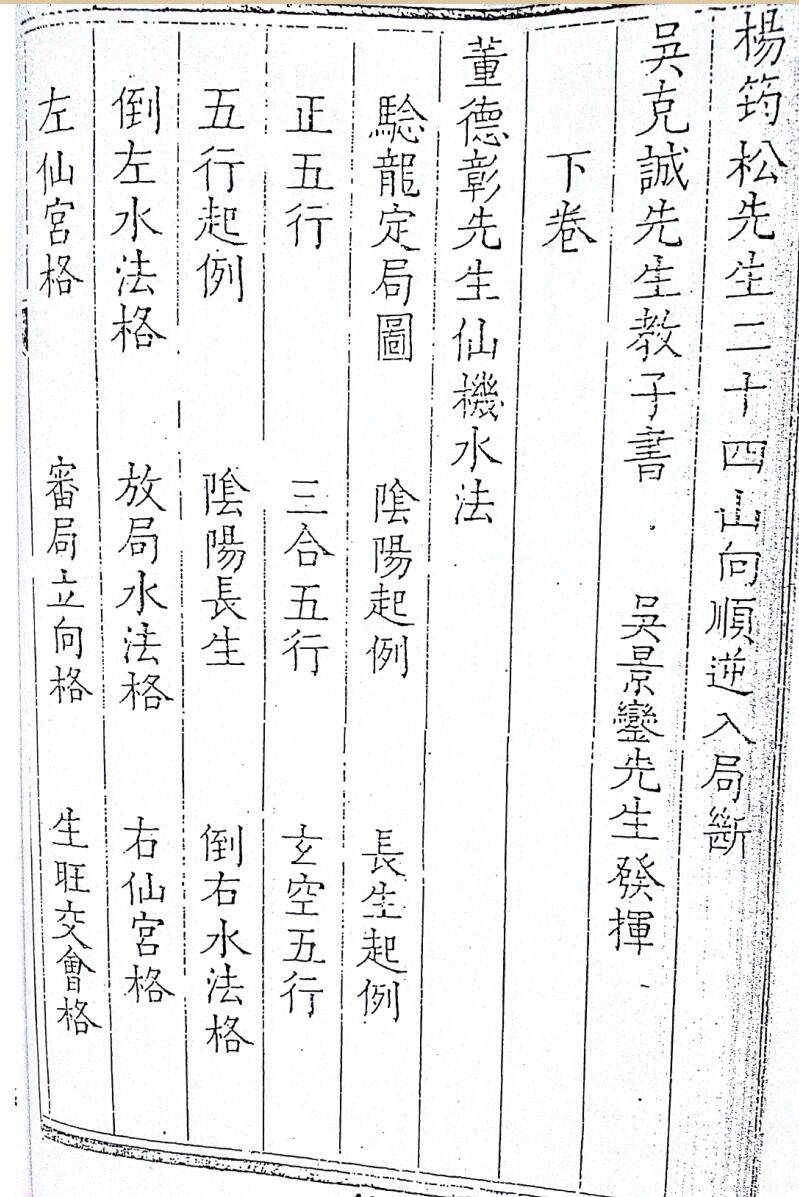 楊筠松先生二十四山向順逆入局斷
吳克誠先生教子書　吳景鸞先生發揮
下卷
董德彰先生仙機水法
驗龍定局圖　陰陽起例　長生起例
正五行　三合五行　玄空五行
五行起例　陰陽長生　倒右水法格
倒左水法格　放局水法格　右仙宮格
左仙宮格　審局立向格　生旺交會格